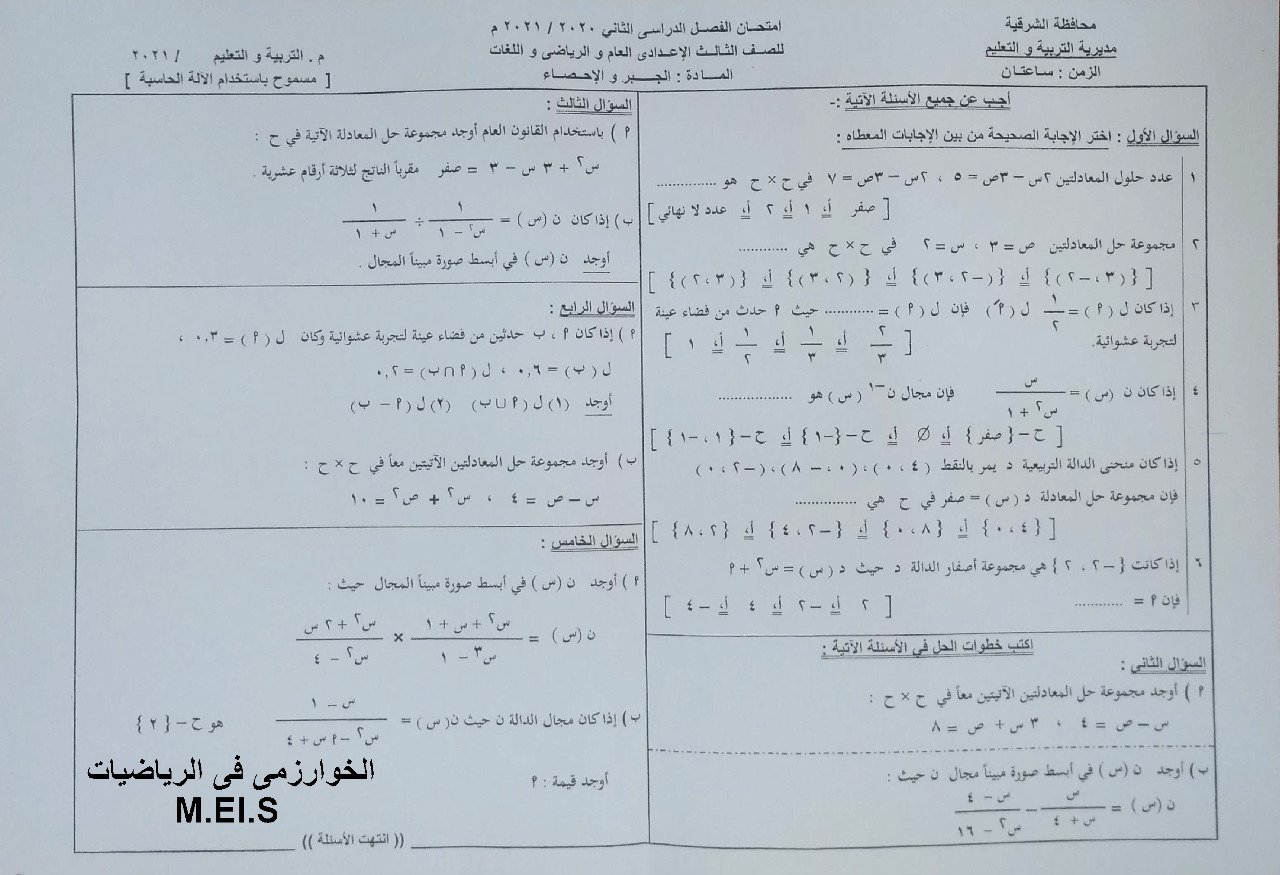 محافظة الشرقية
مديرية التربية و التعليم
الزمن : ساعتان
امتحان الفصل الدراسى الثانى ٢٠٢٠ / ٢٠٢١ م
للصف الثالث الإعدادى العام و الرياضى و اللغات
المــادة : الجــبـر و الإحصــاء
م . التربية و التعليم / ٢٠٢١
[ مسموح باستخدام الآلة الحاسبة ]
أجب عن جميع الأسئلة الآتية :-
السؤال الأول : اختر الإجابة الصحيحة من بين الإجابات المعطاه :
١ عدد حلول المعادلتين ٢س – ٣ص = ٥ ، ٢س – ٣ص = ٧ في ح × ح هو ...............
[ صفر أ، ١ أ، ٢ أ، عدد لا نهائي ]
٢ مجموعة حل المعادلتين ص = ٣ ، س = ٢ في ح × ح هي ............
[ {(٣، –٢)} أ، {(–٢، ٣)} أ، {(٢، ٣)} أ، {(٣، ٢)} ]
٣ إذا كان ل ( ٩ ) = ١/٢ ل ( ٩َ ) فإن ل ( ٩ ) = ............ حيث ٩ حدث من فضاء عينة
لتجربة عشوائية. [ ٢/٣ أ، ١/٣ أ، ١/٢ أ، ١ ]
٤ إذا كان ن (س) = س/(س٢ + ١) فإن مجال ن–١ (س) هو ..................
[ ح – { صفر } أ، ∅ أ، ح – {–١} أ، ح – {١، –١} ]
٥ إذا كان منحنى الدالة التربيعية د يمر بالنقط ( ٤، ٠) ، (٠، – ٨) ، (–٢، ٠)
فإن مجموعة حل المعادلة د (س) = صفر في ح هي ...............
[ {٤، ٠} أ، {٨، ٠} أ، {–٢، ٤} أ، {٢، ٨} ]
٦ إذا كانت {–٢، ٢} هي مجموعة أصفار الدالة د حيث د (س) = س٢ + ٩
فإن ٩ = ............ [ ٢ أ، –٢ أ، ٤ أ، –٤ ]
اكتب خطوات الحل في الأسئلة الآتية :
السؤال الثانى :
٩ ) أوجد مجموعة حل المعادلتين الآتيتين معاً في ح × ح :
س – ص = ٤ ، ٣ س + ص = ٨
ب) أوجد ن (س) في أبسط صورة مبيناً مجال ن حيث :
ن (س) = س/(س + ٤) – (س – ٤)/(س٢ – ١٦)
السؤال الثالث :
٩ ) باستخدام القانون العام أوجد مجموعة حل المعادلة الآتية في ح :
س٢ + ٣ س – ٣ = صفر مقرباً الناتج لثلاثة أرقام عشرية .
ب) إذا كان ن (س) = ١/(س٢ – ١) ÷ ١/(س + ١)
أوجد ن (س) في أبسط صورة مبيناً المجال .
السؤال الرابع :
٩ ) إذا كان ٩ ، ب حدثين من فضاء عينة لتجربة عشوائية وكان ل ( ٩ ) = ٠,٣ ،
ل ( ب) = ٠,٦ ، ل ( ٩ ∩ ب) = ٠,٢
أوجد (١) ل ( ٩ ∪ ب) (٢) ل ( ٩ – ب)
ب) أوجد مجموعة حل المعادلتين الآتيتين معاً في ح × ح :
س – ص = ٤ ، س٢ + ص٢ = ١٠
السؤال الخامس :
٩ ) أوجد ن (س) في أبسط صورة مبيناً المجال حيث :
ن (س) = (س٢ + س + ١)/(س٣ – ١) × (س٢ + ٢ س)/(س٢ – ٤)
ب) إذا كان مجال الدالة ن حيث ن( س) = (س – ١)/(س٢ – ٩ س + ٤) هو ح – { ٢ }
أوجد قيمة : ٩
(( انتهت الأسئلة ))
الخوارزمى فى الرياضيات
M.El.S